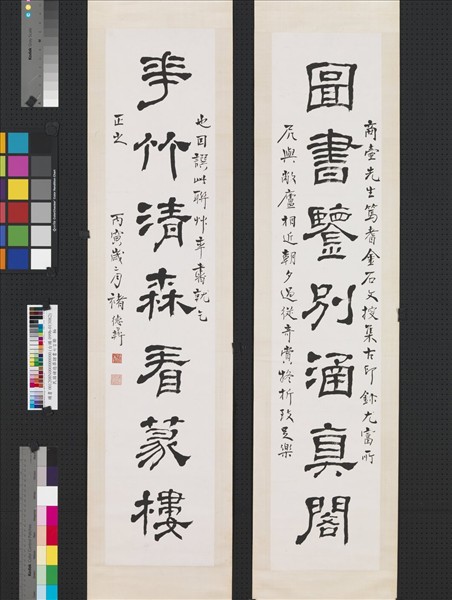 圖書鑒別涵真閣
商壺先生篤耆金石又搜集古印鉨尤富所
凥與敝廬相近朝夕過從奇賞疑析致足樂
華竹清森看篆樓
也因譔此聯艸率書就乞
正之
丙寅歲 月褚德彝